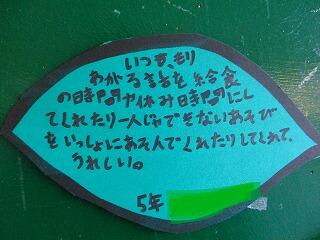 いつも、もり
あがる話を給食
の時間や休み時間にし
てくれたり一人じゃできないあそび
をいっしょにあそんでくれたりしてくれて、
うれしい。
5年